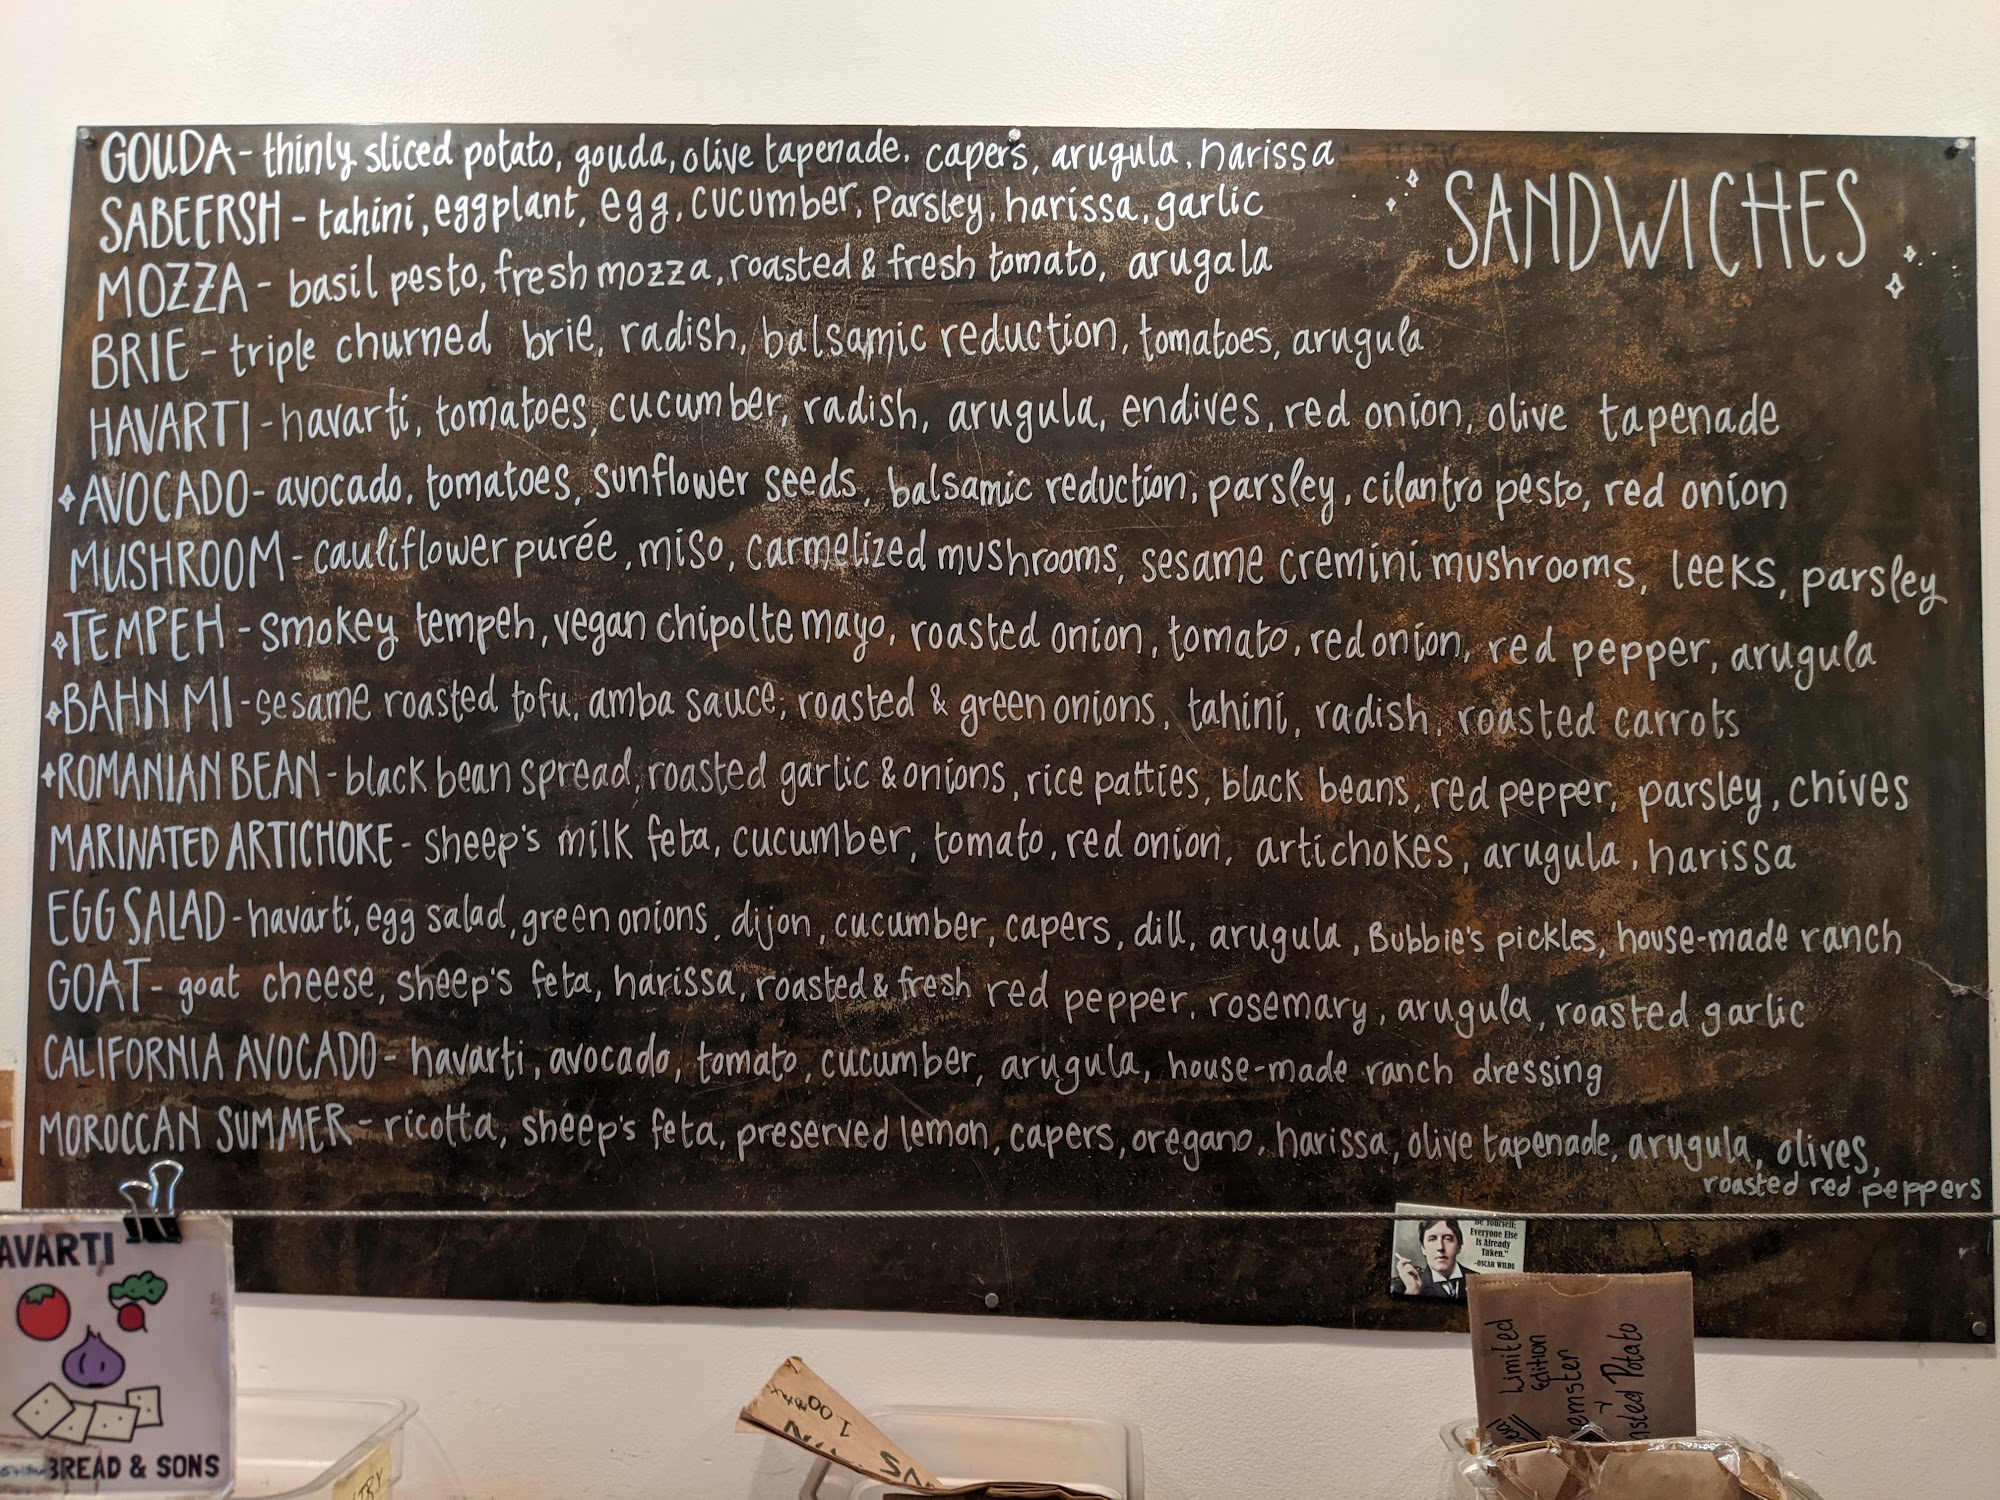 SANDWICHES
GOUDA - thinly sliced potato, gouda, olive tapenade, capers, arugula, harissa
SABEERSH - tahini, eggplant, egg, cucumber, parsley, harissa, garlic
MOZZA - basil pesto, fresh mozza, roasted & fresh tomato, arugala
BRIE - triple churned brie, radish, balsamic reduction, tomatoes, arugula
HAVARTI - havarti, tomatoes, cucumber, radish, arugula, endives, red onion, olive tapenade
AVOCADO - avocado, tomatoes, sunflower seeds, balsamic reduction, parsley, cilantro pesto, red onion
MUSHROOM - cauliflower purée, miso, carmelized mushrooms, sesame cremini mushrooms, leeks, parsley
TEMPEH - smokey tempeh, vegan chipolte mayo, roasted onion, tomato, red onion, red pepper, arugula
BAHN MI - sesame roasted tofu, amba sauce, roasted & green onions, tahini, radish, roasted carrots
ROMANIAN BEAN - black bean spread, roasted garlic & onions, rice patties, black beans, red pepper, parsley, chives
MARINATED ARTICHOKE - sheep's milk feta, cucumber, tomato, red onion, artichokes, arugula, harissa
EGG SALAD - havarti, egg salad, green onions, dijon, cucumber, capers, dill, arugula, Bubbie's pickles, house-made ranch
GOAT - goat cheese, sheep's feta, harissa, roasted & fresh red pepper, rosemary, arugula, roasted garlic
CALIFORNIA AVOCADO - havarti, avocado, tomato, cucumber, arugula, house-made ranch dressing
MOROCCAN SUMMER - ricotta, sheep's feta, preserved lemon, capers, oregano, harissa, olive tapenade, arugula, olives,
roasted red peppers
Be Yourself;
Everyone Else
Is Already
Taken."
-OSCAR WILDE
AVARTI
BREAD & SONS
Limited
Edition
Potato
1.00